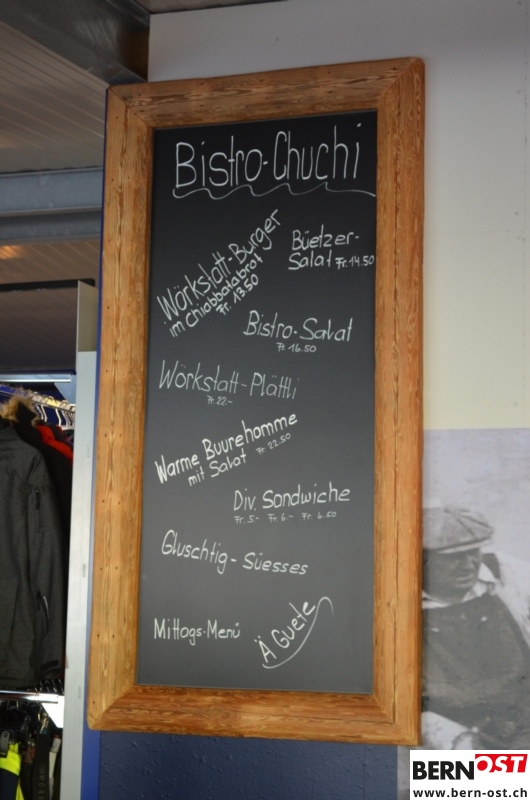 Bistro-Chuchi
Wörkstatt-Burger
im Chiabbatabrot
Fr. 13.50
Büetzer-
Salat Fr. 14.50
Bistro-Salat
Fr. 16.50
Wörkstatt-Plättli
Fr. 22.-
Warme Buurehomme
mit Salat Fr. 22.50
Div. Sandwiche
Fr. 5.- Fr. 6.- Fr. 6.50
Gluschtig-Süesses
Mittags-Menü
Ä Guete
BERNOST
www.bern-ost.ch